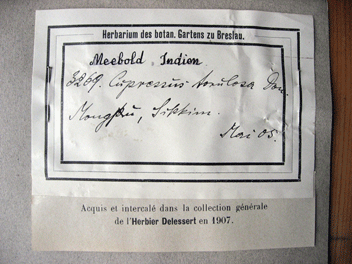 Herbarium des botan. Gartens zu Breslau.
Meebold, Indien
3269. Cupressus torulosa Don.
Mongpu, Sikkim.
Mai 05.
Acquis et intercalé dans la collection générale
de l'Herbier Delessert en 1907.